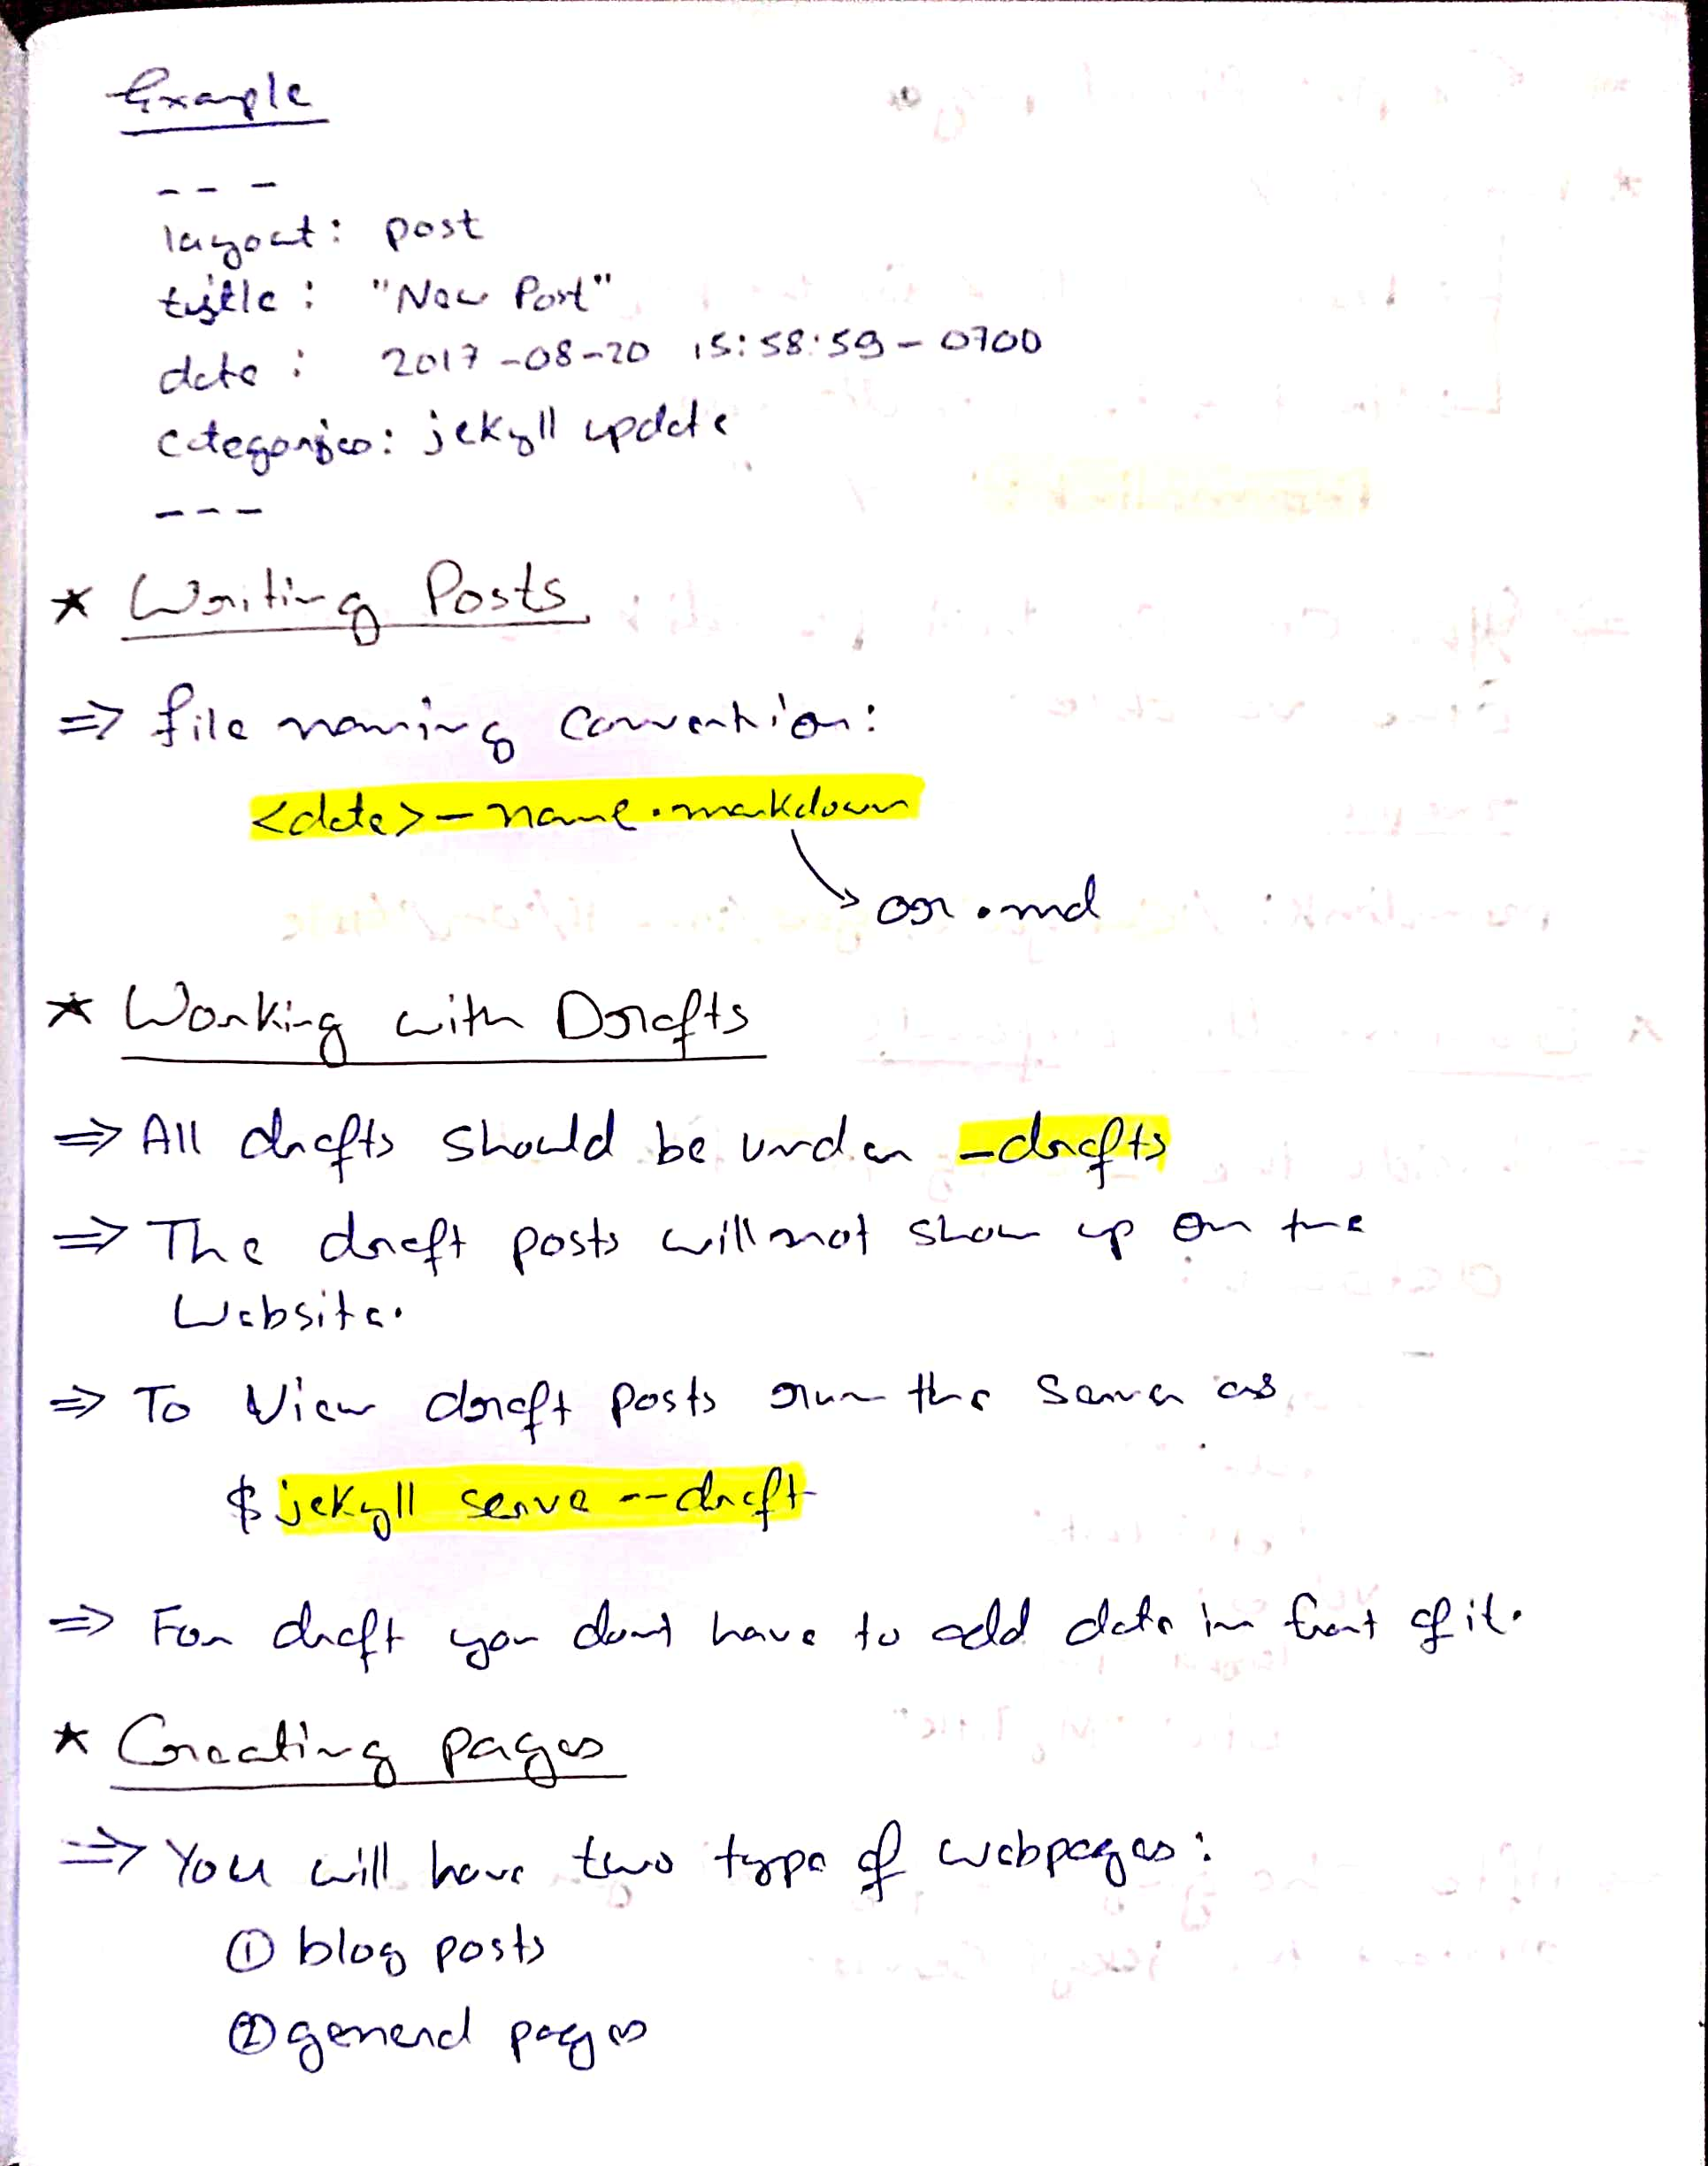 Example
---
layout: post
title: "New Post"
date: 2017-08-20 15:58:59-0700
categories: jekyll update
---
* Writing Posts
⇒ file naming convention:
<date>-name.markdown
or .md
* Working with Drafts
⇒ All drafts should be under _drafts
⇒ The draft posts will not show up on the
website.
⇒ To View draft posts run the server as
$ jekyll serve --draft
⇒ For draft you dont have to add date in front of it.
* Creating pages
⇒ You will have two type of webpages:
① blog posts
② general pages